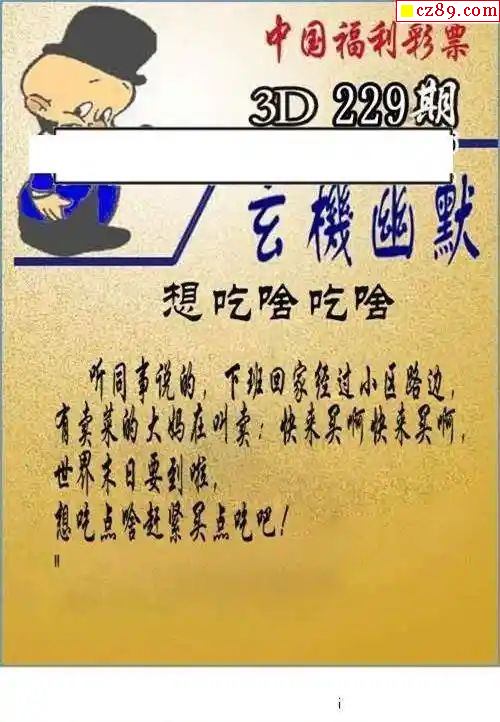 cz89.com
中国福利彩票
3D 229期
玄機幽默
想吃啥吃啥
听同事说的，下班回家经过小区路边，
有卖菜的大妈在叫卖：快来买啊快来买啊，
世界末日要到啦，
想吃点啥赶紧买点吃吧！
"
i